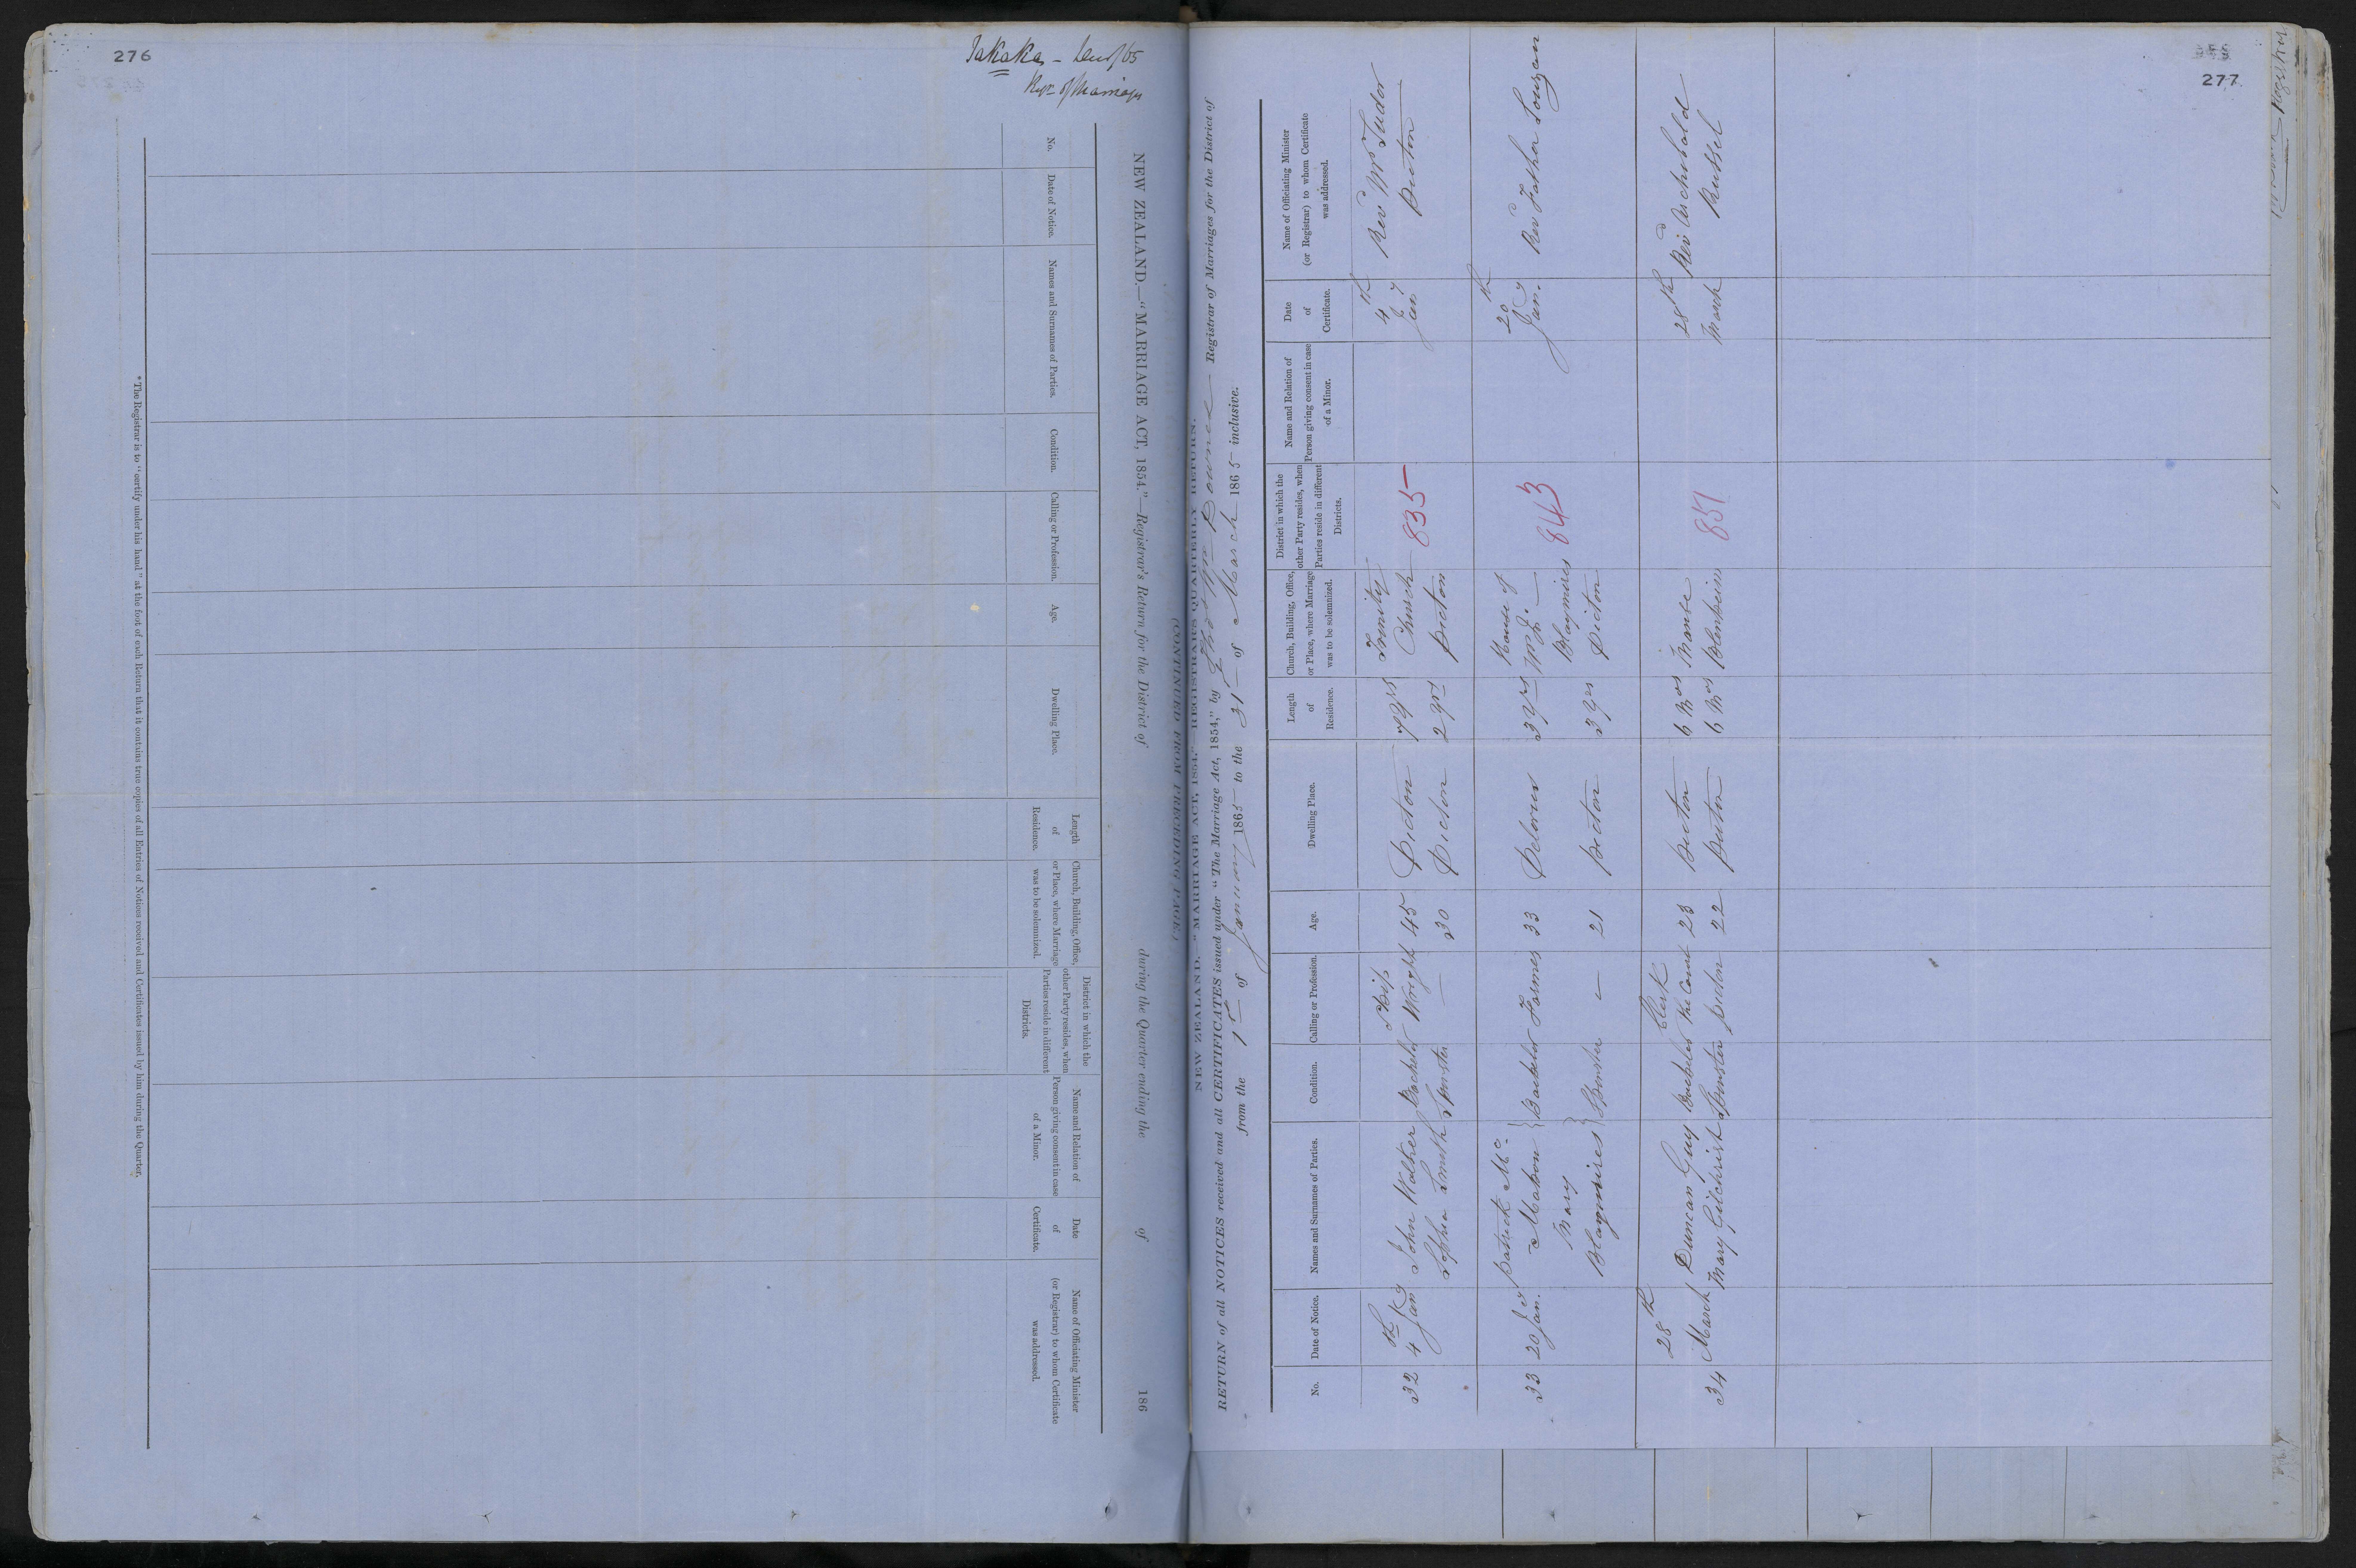 276
Takaka - Decr/65
Regr. of Marriages
NEW ZEALAND.—“MARRIAGE ACT, 1854.”—Registrar's Return for the District of during the Quarter ending the of 186
No.
Date of Notice.
Names and Surnames of Parties.
Condition.
Calling or Profession.
Age.
Dwelling Place.
Length
of
Residence.
Church, Building, Office,
or Place, where Marriage
was to be solemnized.
District in which the
other Party resides, when
Parties reside in different
Districts.
Name and Relation of
Person giving consent in case
of a Minor.
Date
of
Certificate.
Name of Officiating Minister
(or Registrar) to whom Certificate
was addressed.
*The Registrar is to “certify under his hand” at the foot of each Return that it contains true copies of all Entries of Notices received and Certificates issued by him during the Quarter.
277
(CONTINUED FROM PRECEDING PAGE)
NEW ZEALAND.—“MARRIAGE ACT, 1854.”—REGISTRAR'S QUARTERLY RETURN.
RETURN of all NOTICES received and all CERTIFICATES issued under “The Marriage Act, 1854,” by Downes Registrar of Marriages for the District of
from the 1st of January 1865 to the 31 of March 1865 inclusive.
No.
Date of Notice.
Names and Surnames of Parties.
Condition.
Calling or Profession.
Age.
Dwelling Place.
Length
of
Residence.
Church, Building, Office,
or Place, where Marriage
was to be solemnized.
District in which the
other Party resides, when
Parties reside in different
Districts.
Name and Relation of
Person giving consent in case
of a Minor.
Date
of
Certificate.
Name of Officiating Minister
(or Registrar) to whom Certificate
was addressed.
32 4th Jany John Walker Bachelor Ship Wright 45 Picton 7 yrs Trinity Church 835 4th Jany Revd Wm Tudor
Sophia Smith Spinster — 30 Picton 2 yrs Picton Picton
33 20 Jany Patrick Mc Mahon Bachelor Farmer 33 Pelorus 3 yrs House of Wm. 843 20th Jany. Revd Father
Mary Blaymires Spinster — 21 Picton 3 yrs Blaymires Picton
34 28th March Duncan Guy Bachelor Clerk the Court 28 Picton 6 Mos Manse 851 28th March Revd Archibald
Mary Gilchrist Spinster Picton 22 Picton 6 Mos Blenheim Russel
Registrar